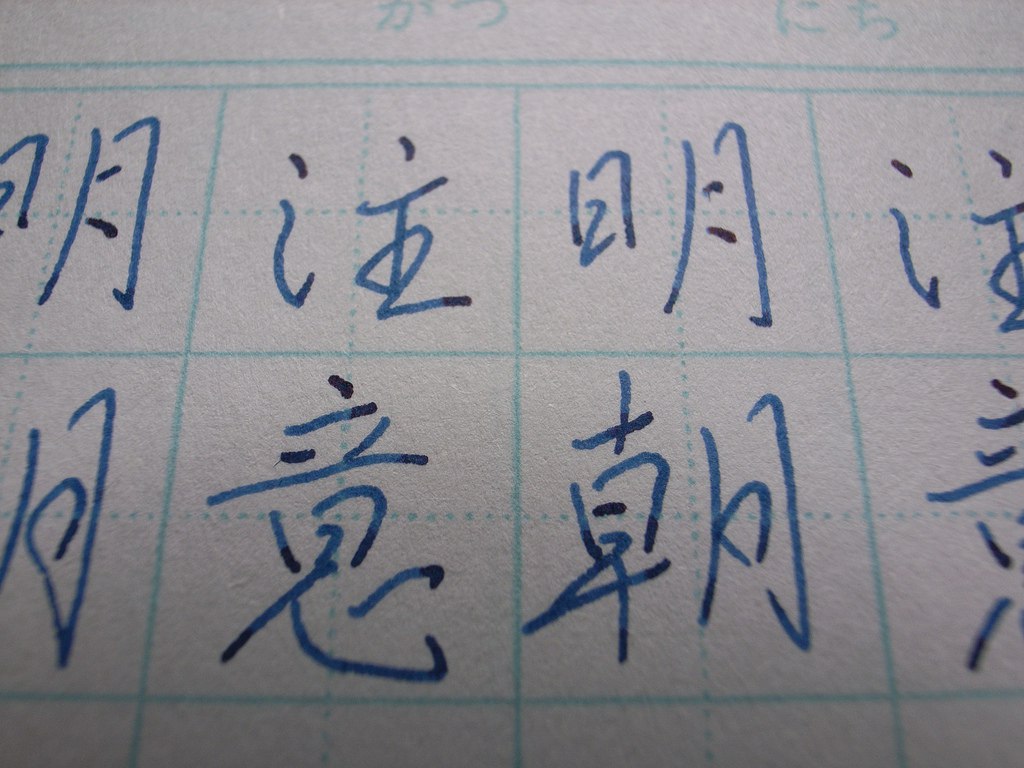 がつ にち
注意
明朝
注意
明朝